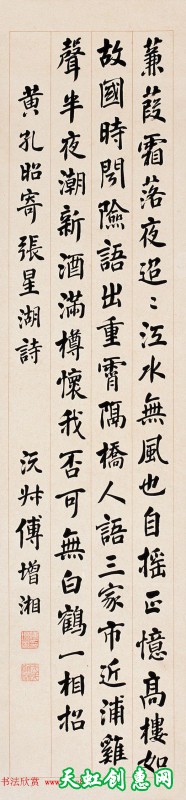 蒹葭霜落夜迢〻江水無風也自摇正憶高樓如
故國時聞險語出重霄隔橋人語三家市近浦雞
聲半夜潮新酒滿樽懷我否可無白鶴一相招
黄孔昭寄張星湖詩 沅叔傅增湘
书法欣赏
天虹创意网